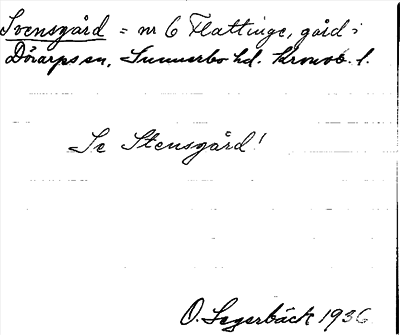 Svensgård = nr 6 Flattinge, gård i
Dörarps sn, Sunnerbo hd. Kronob. l.
Se Stensgård!
O. Segerbäck 1936